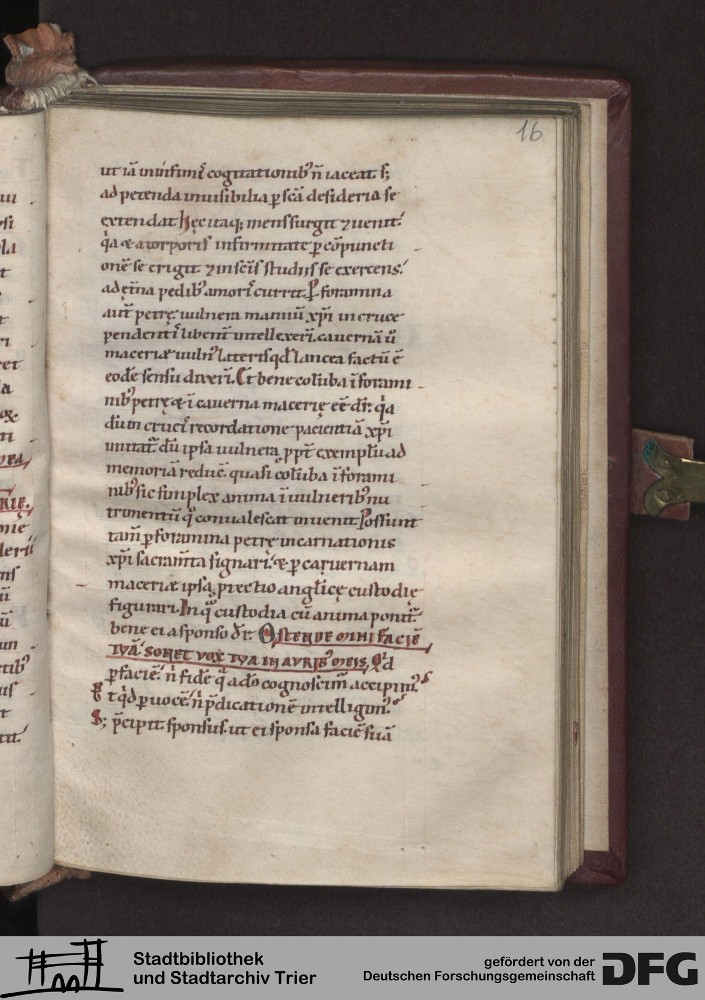 16
ut iā ininfimis cogitationib᷒ n̄ iaceat. s;
ad petenda inuisibilia ꝑ scā desideria se
extendat. Hęc itaq; mens surgit ⁊ uenit.
q̇a & a torporis infirmitate ꝑ cōpuncti
onē se erigit. ⁊ in scīs studiis se exercens.
ad ęt̄na pedib᷒ amoris currit. Ꝑ foramina
aut̄ petrę uulnera manuū xp̄i in cruce
pendentis libent̄ intellexeri. cauernā ū
maceriæ uuln᷒ lateris qd̄ lancea factū ē
eodē sensu dixeri. Et bene colūba ī forami
nib᷒ petrę & ī cauerna macerię eē dr̄. q̇a
dū in crucis recordatione pacientiā xp̄i
imitat̄. dū ipsa uulnera ppt̄ exemplū ad
memoriā reduc̄. quasi colūba ī forami
nib᷒ sic simplex anima ī uulnerib᷒ nu
trimentū q̊ conualescat inuenit. Possunt
tam̄ ꝑ foramina petrę incarnationis
xp̄i sacram̄ta signari. & ꝑ cauernam
maceriæ ipsa ꝓtectio anglicę custodię
figurari. In q̊ custodia cū anima ponit̄.
bene ei a sponso dr̄. OSTENDE MIHI FACIĒ
TVĀ. SONET VOX TVA IN AVRIB᷒ MEIS. Q'd
ꝑ faciē. n̄ fidē q̊ a dō cognoscim̄ accipim᷒
t q̇d ꝑ uocē. n̄ p̄dicationē intelligim᷒
S; p̄cipit sponsus. ut ei sponsa faciē suā
Stadtbibliothek
und Stadtarchiv Trier
gefördert von der
Deutschen Forschungsgemeinschaft
DFG